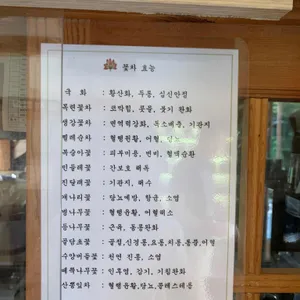 꽃차 효능
국 화 : 황산화, 두통, 심신안정
목련꽃차 : 코막힘, 콧물, 붓기 완화
생강꽃차 : 면역력강화, 독소배출, 기관지
찔레순차 : 혈행원활, 어혈, 당뇨
복숭아꽃 : 피부미용, 변비, 혈액순환
민들레꽃 : 간보호 해독
진달래꽃 : 기관지, 해수
개나리꽃 : 당뇨예방, 항균, 소염
벚나무꽃 : 혈행원활, 어혈해소
등나무꽃 : 근육, 통풍완화
골담초꽃 : 골절,신경통,요통,치통,통풍,어혈
수양버들꽃 : 천연 진통, 소염
때죽나무꽃 : 인후염, 감기, 기침완화
산뽕잎차 : 혈행원활,당뇨,콜레스테롤